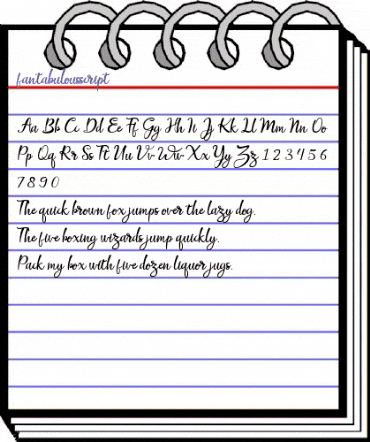 fantabulousscript
Aa Bb Cc Dd Ee Ff Gg Hh Ii Jj Kk Ll Mm Nn Oo
Pp Qq Rr Ss Tt Uu Vv Ww Xx Yy Zz 1 2 3 4 5 6
7 8 9 0
The quick brown fox jumps over the lazy dog.
The five boxing wizards jump quickly.
Pack my box with five dozen liquor jugs.